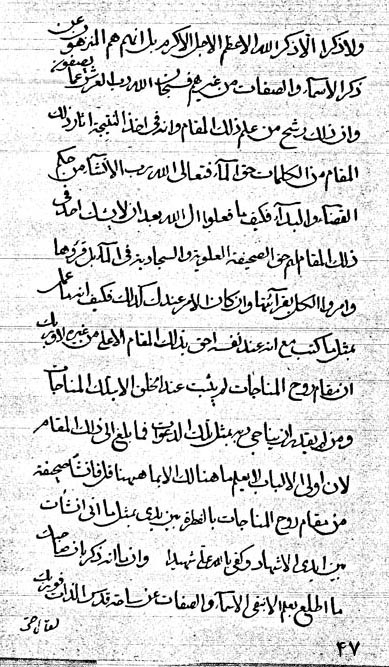 ولا ذكرا الا ذكر الله الاعظم الاجل الاكرم بل انهم هم المنزهون عن
ذكر الاسماء والصفات من غيرهم فسبحان الله رب العرش عما يصفون
وان ذلك رشح من علم ذلك المقام وانه في اخذ النتيجة اثار ذلك
المقام من الكلمات حق الماء فتعالى الله رب الانشاء من حكم
القضاء والبداء فكيف ما فعلوا ال الله بعد ان لا يشك احد في
ذلك المقام لهم حق الصحيفة العلوية والسجادية في الكل قرؤها
وامروا الكل بقرائتها وان كان الامر عندك كذلك فكيف انها عمل
بمثل ما كتب مع انه عند نفسه احق بذلك المقام الاعلى من غيره لاوربك
ان مقام روح المناجات لم يثبت عند الخلق الا بتلك المناجات
ومن لم يقدر ان يناجي ربه بمثل تلك الدعوات فما بلغ الى ذلك المقام
لان اولى الالباب لا يعلم ما هنالك الا بما هيهنا قل فانشأ صحيفة
من مقام روح المناجات بالفطرة بين يدي بمثل ما اني انشأت
بين ايدي الاشهاد وكفى بالله علي شهيدا وان ما انه ذكر بان صاحبك
ما اطلع بعلم الا بنفي الاسماء والصفات عن ساحة قدس الذات فوربك
٤٧